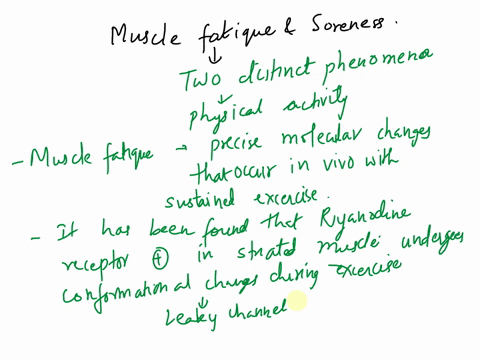 Muscle fatigue & Soreness.
↓
Two distinct phenomena
↓
physical activity
- Muscle fatique → precise molecular changes
that occur in vivo with
sustained excercise.
- It has been found that Riyanodine
receptor ⊕ in strated muscle undergoes
conformational changs during excercise
↓
Leaky channel